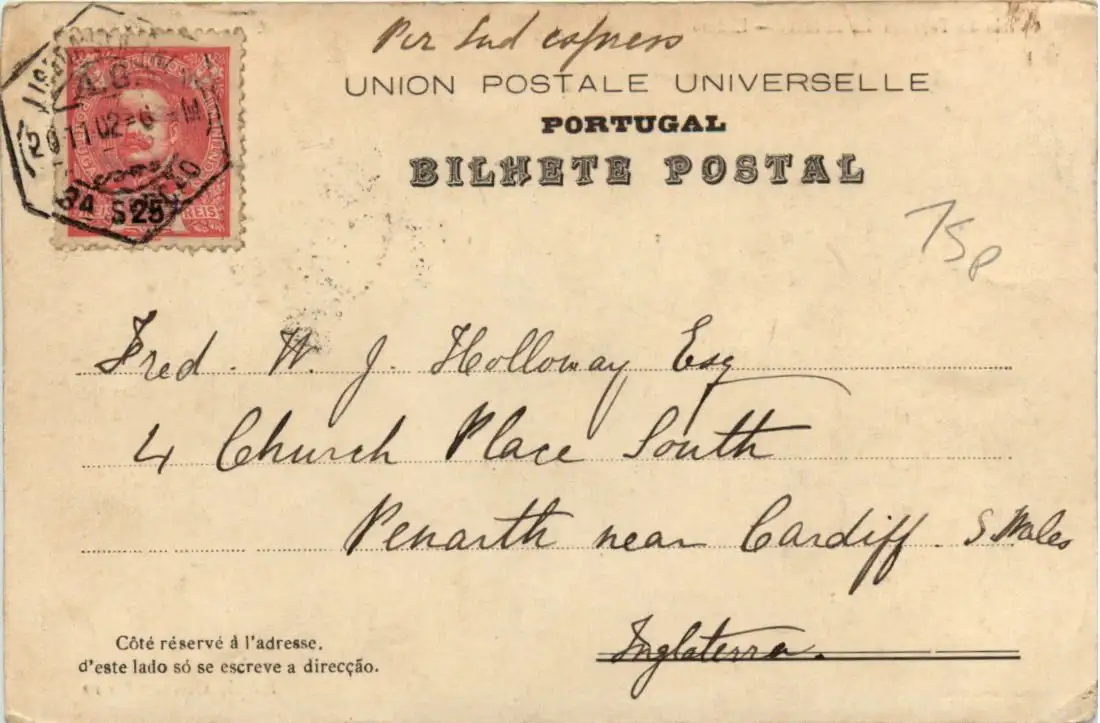 Per Sud express
UNION POSTALE UNIVERSELLE
PORTUGAL
BILHETE POSTAL
20 11 02 = 6
34 S
25 REIS
75p
Fred. W. J. Holloway Esq
4 Church Place South
Penarth near Cardiff. S Wales
Inglaterra.
Côté réservé á l'adresse.
d'este lado só se escreve a direcção.